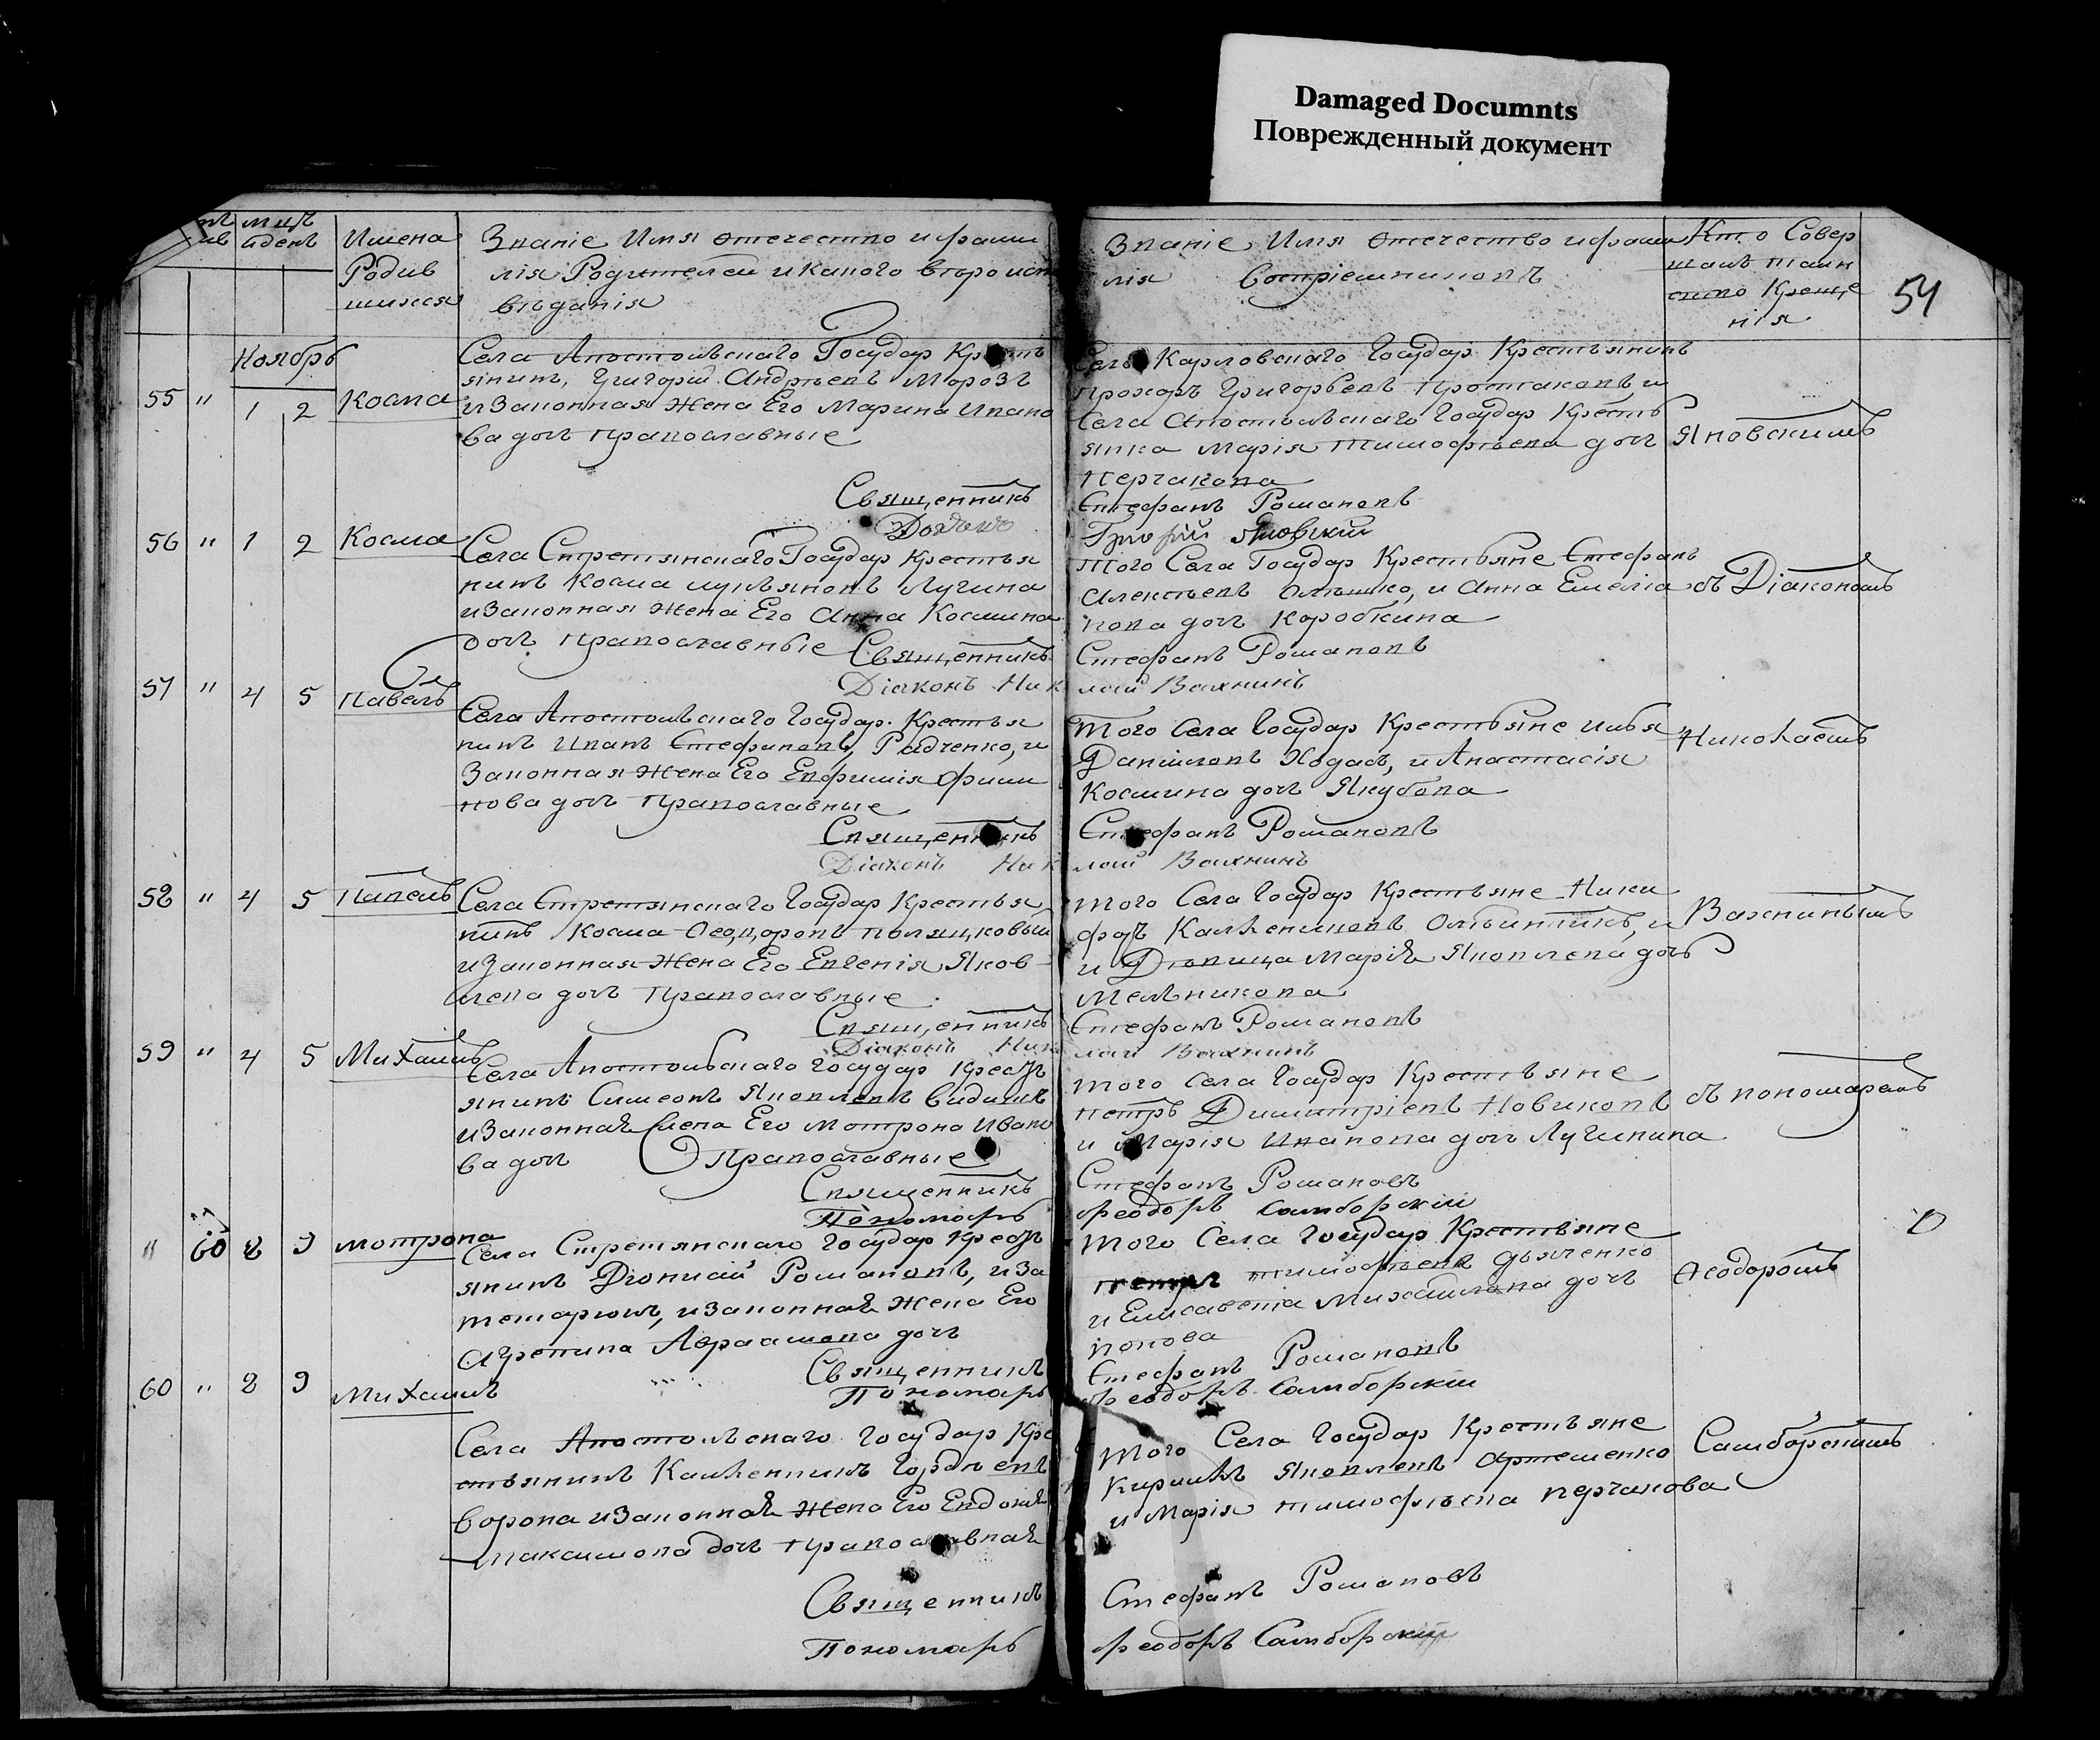 Damaged Documnts
Поврежденный документ
54
мцъ
и день
Имена
Родив
шихся
Званіе Имя отечество и фами
лія Родителей и какого вѣроисп
вѣданія
Званіе Имя отечество и фами
лія Воспріемниковъ
Кто Совер
шалъ таин
ство Креще
нія
Ноябрь
55 " 1 2 Косма
Села Апостольскаго Государ Крестъ
янинъ, Григорій Андрѣевъ Морозъ
и Законная Жена Его Марина Ивано
ва дочь православные
Священникъ
Карловскаго Государ Крестьянинъ
Прохоръ Григорьевъ
Села Апостольскаго Государ Кресть
янка Марія Тимофѣева дочь
Перчакова
Стефанъ Романовъ
Григорій Яновскій
Яновскимъ
56 " 1 2 Косма
Села Стретянскаго Государ Крестья
нинъ Косма Лукьяновъ Лучина
и Законная Жена Его Анна Космина
дочь православные Священникъ
Діаконъ Ник
Того Села Государ Крестьяне Стефанъ
Алексѣевъ и Анна Емелія
нова дочь Коробкина
Стефанъ Романовъ
лай Вахнинъ
съ Діакономъ
57 " 4 5 Павелъ
Села Апостольскаго Государ. Крестья
нинъ Иванъ Стефановъ, Радченко, и
Законная Жена Его Евфимія Фили
пова дочь Православные
Священникъ
Діаконъ Ник
Того Села Государ Крестьяне Илья
Даніиловъ Ходасъ, и Анастасія
Космина дочь Якубова
Стефанъ Романовъ
лай Вахнинъ
Николаемъ
58 " 4 5 Павелъ
Села Стретянскаго Государ Крестья
нинъ Косма Ѳеодоровъ
и Законная Жена Его Евгенія Яков
лева дочь Православные.
Священникъ
Діаконъ Ник
Того Села Государ Крестьяне Ники
форъ Каллениковъ и
и Дѣвица Марія Яковлева дочь
Мельникова
Стефанъ Романовъ
лай Вахнинъ
Вахнинымъ
59 " 4 5 Михаилъ
Села Апостольскаго Государ Крестъ
янинъ Симеонъ Яковлевъ
и Законная Жена Его Мотрона Ивано
ва дочь Православные
Священникъ
Пономарь
Того Села Государ Крестьяне
Петръ Димитріевъ Новиковъ
и Марія Иванова дочь Лучинина
Стефанъ Романовъ
Феодоръ Самборскій
съ пономаремъ
" 60 8 9 Мотрона
Села Стретянскаго Государ Крестъ
янинъ Діонисій Романовъ, и За
и законная Жена Его
Агрепина Авраамова дочь
Священникъ
Пономарь
Того Села Государ Крестьяне
Петръ Тимофѣевъ Дьяченко
и Елисавета Михаилова дочь
Попова
Стефанъ Романовъ
Феодоръ Самборскій
Ѳеодоромъ
60 " 8 9 Михаилъ
Села Апостольскаго Государ Кре
стьянинъ Калленникъ Гордѣевъ
Ворона и Законная Жена Его Евдокія
Максимова дочь православная
Священникъ
Пономарь
Того Села Государ Крестьяне
Кириллъ Яковлевъ Артеменко
и Марія Тимофѣева Перчакова
Стефанъ Романовъ
Феодоръ Самборскій
Самборскимъ